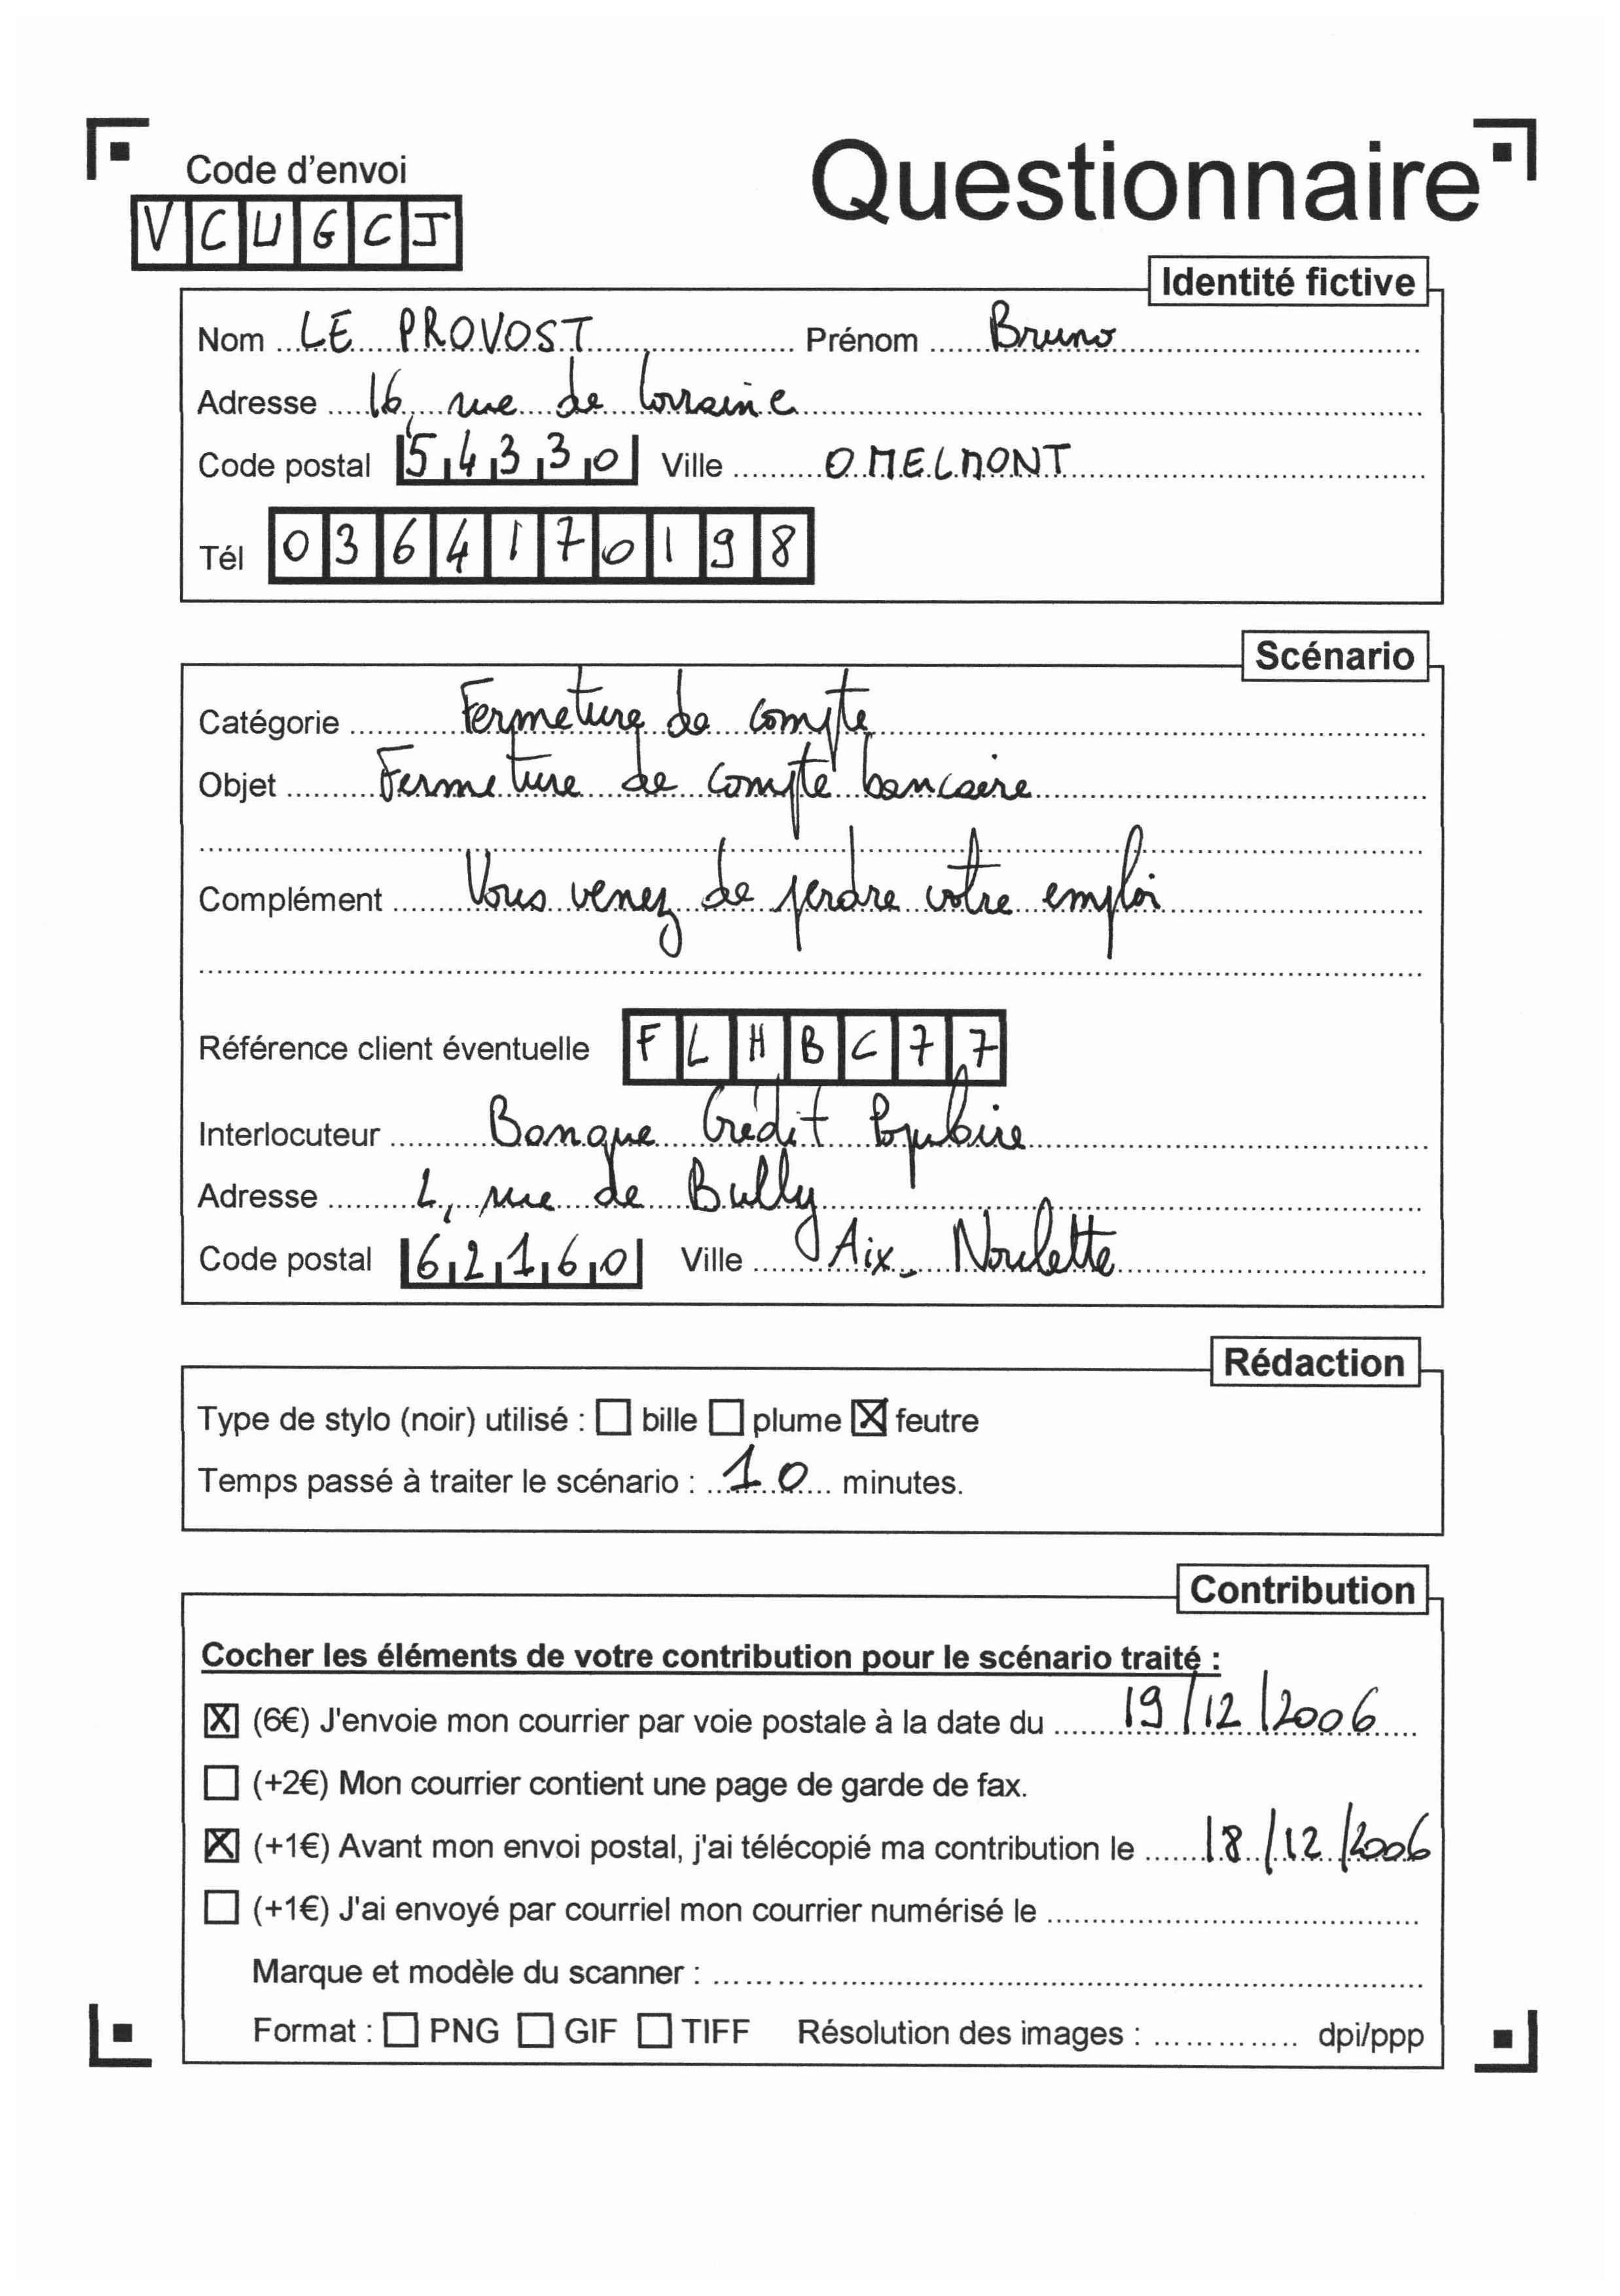 Code d'envoi
Questionnaire
VCUGCJ
Identité fictive
Nom LE PROVOST Prénom Bruno
Adresse 16, rue de Lorraine
Code postal 54330 Ville OMELMONT
Tél 0364170198
Scénario
Catégorie Fermeture de compte
Objet Fermeture de compte bancaire
Complément Vous venez de perdre votre emploi
Référence client éventuelle FLHBC77
Interlocuteur Banque Crédit Populaire
Adresse 2, rue de Bully
Code postal 62160 Ville Aix-Noulette
Rédaction
Type de stylo (noir) utilisé : ☐ bille ☐ plume ☒ feutre
Temps passé à traiter le scénario : 10 minutes.
Contribution
Cocher les éléments de votre contribution pour le scénario traité :
☒ (6€) J'envoie mon courrier par voie postale à la date du 19/12/2006
☐ (+2€) Mon courrier contient une page de garde de fax.
☒ (+1€) Avant mon envoi postal, j'ai télécopié ma contribution le 18/12/2006
☐ (+1€) J'ai envoyé par courriel mon courrier numérisé le
Marque et modèle du scanner :
Format : ☐ PNG ☐ GIF ☐ TIFF Résolution des images : dpi/ppp